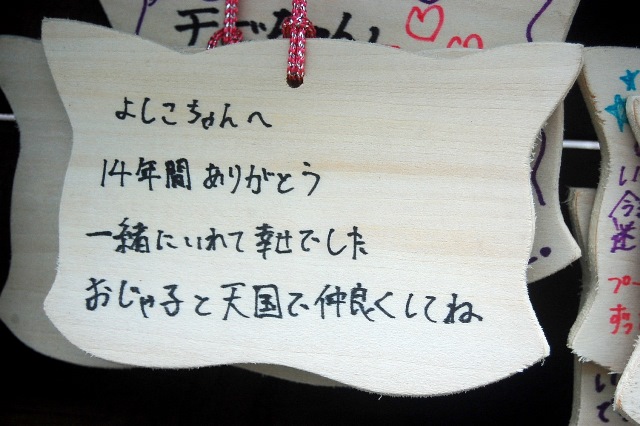 よしこちゃんへ
14年間ありがとう
一緒にいれて幸せでした
おじゃ子と天国で仲良くしてね